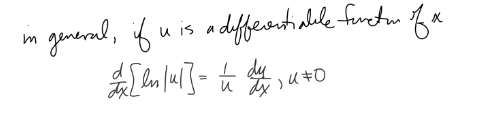 in general, if u is a differentiable function of x
d/dx [ln|u|] = 1/u du/dx, u ≠ 0